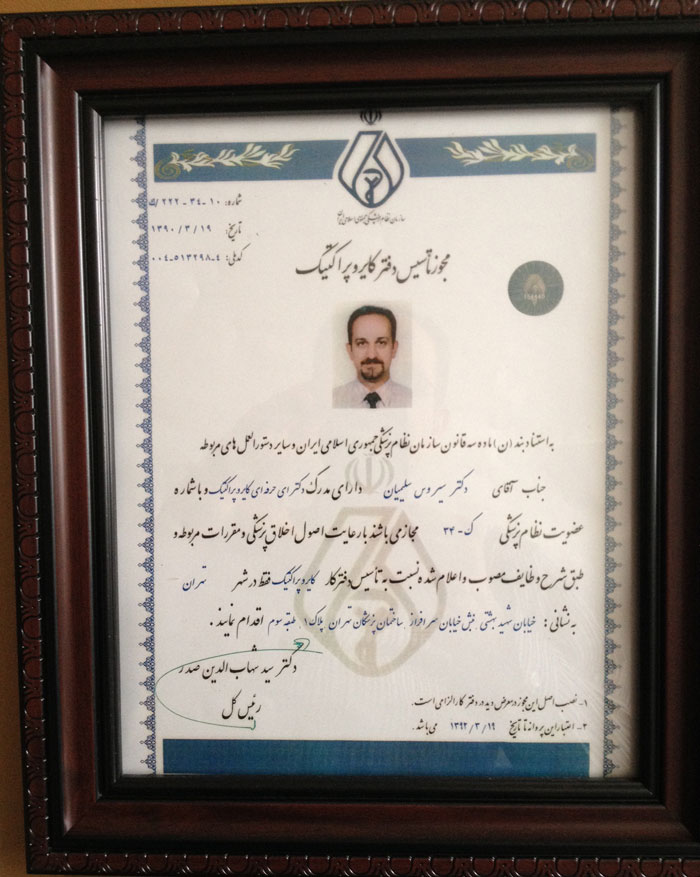 سازمان نظام پزشکی جمهوری اسلامی ایران
شماره: ۱۰ - ۳۴ - ۲۲۲ /ک
تاریخ: ۱۳۹۰/۳/۱۹
کدملی: ۰۰۴-۵۱۳۲۹۸-۴
مجوز تأسیس دفتر کایروپراکتیک
به استناد بند (ن) ماده سه قانون سازمان نظام پزشکی جمهوری اسلامی ایران و سایر دستورالعمل های مربوطه
جناب آقای دکتر سیروس سلیمیان دارای مدرک دکترای حرفه ای کایروپراکتیک و با شماره
عضویت نظام پزشکی ک-۳۴ مجاز می باشند با رعایت اصول اخلاق پزشکی و مقررات مربوطه و
طبق شرح وظایف مصوب و اعلام شده نسبت به تأسیس دفتر کار کایروپراکتیک فقط در شهر تهران
به نشانی: خیابان شهید بهشتی نبش خیابان سرافراز ساختمان پزشکان تهران پلاک ۱ طبقه سوم اقدام نمایند.
دکتر سید شهاب الدین صدر
رئیس کل
۱- نصب اصل این مجوز در معرض دید در دفتر کار الزامی است.
۲- اعتبار این پروانه تا تاریخ ۱۳۹۲/۳/۱۹ می باشد.